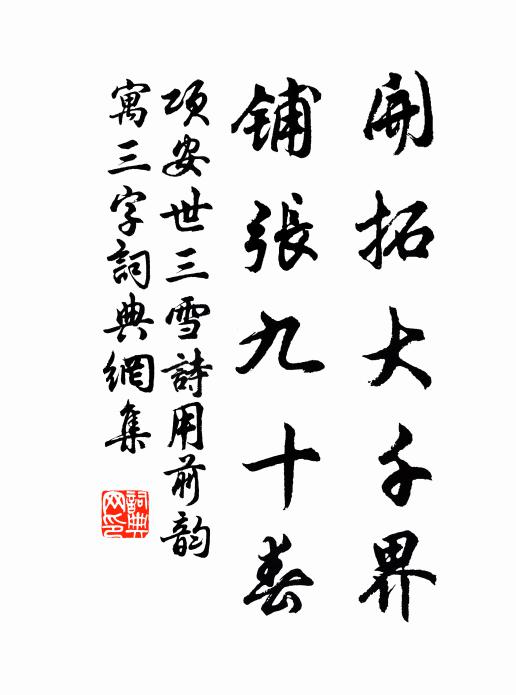 開拓大千界
鋪張九十春
項安世三雪詩用前韵
寓三字詞典網集
詞典網印